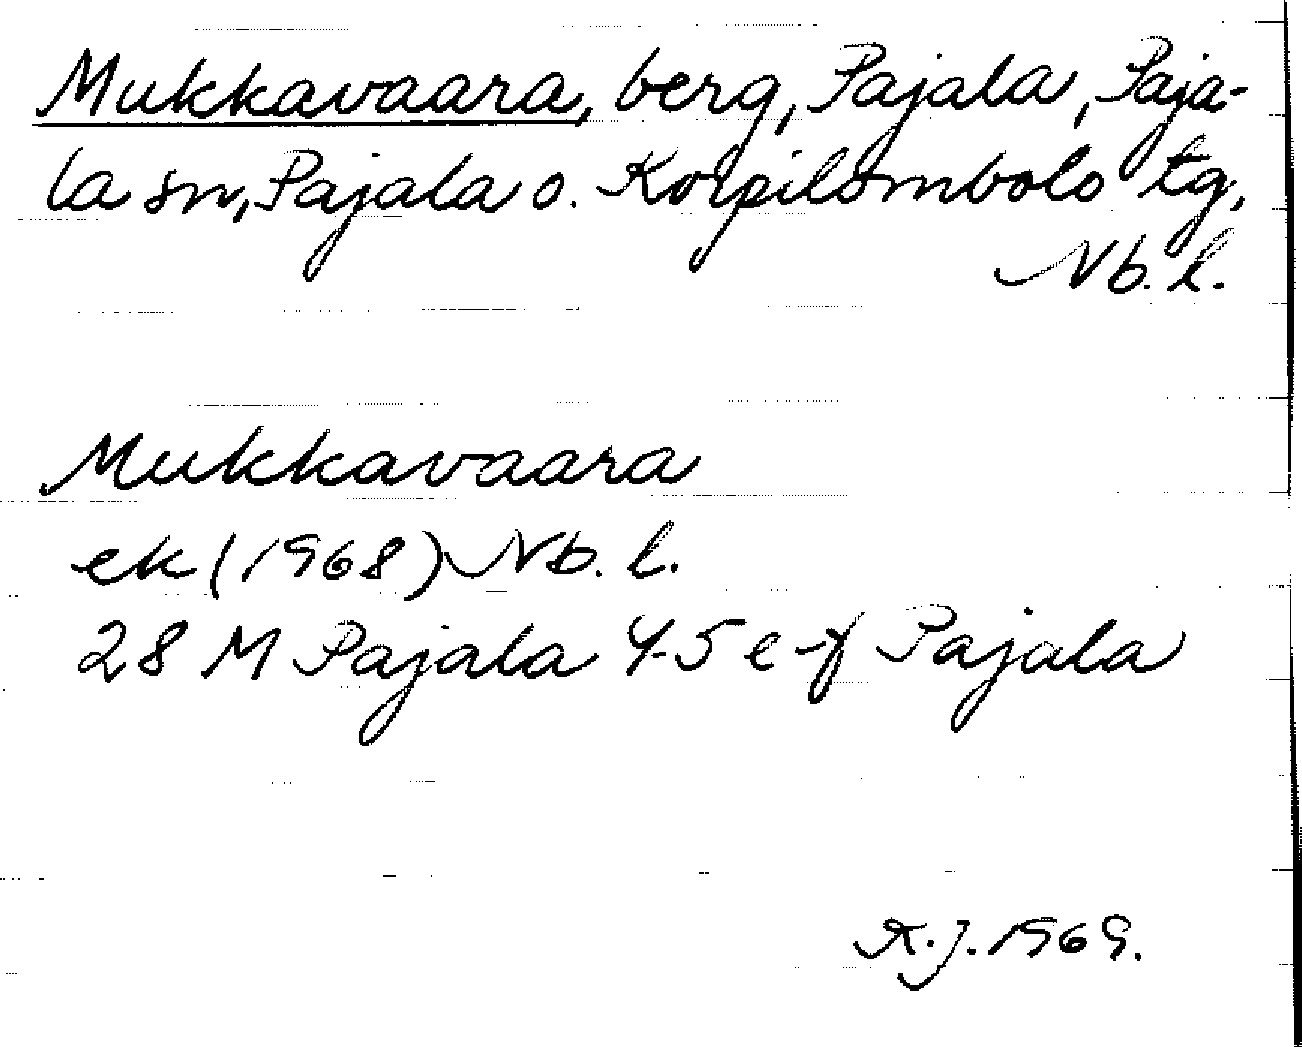 Mukkavaara, berg, Pajala, Paja-
la sn, Pajala o. Korpilombolo tg,
Nb. l.
Mukkavaara
ek (1968) Nb. l.
28 M Pajala 4-5 e-f Pajala
K.J. 1969.